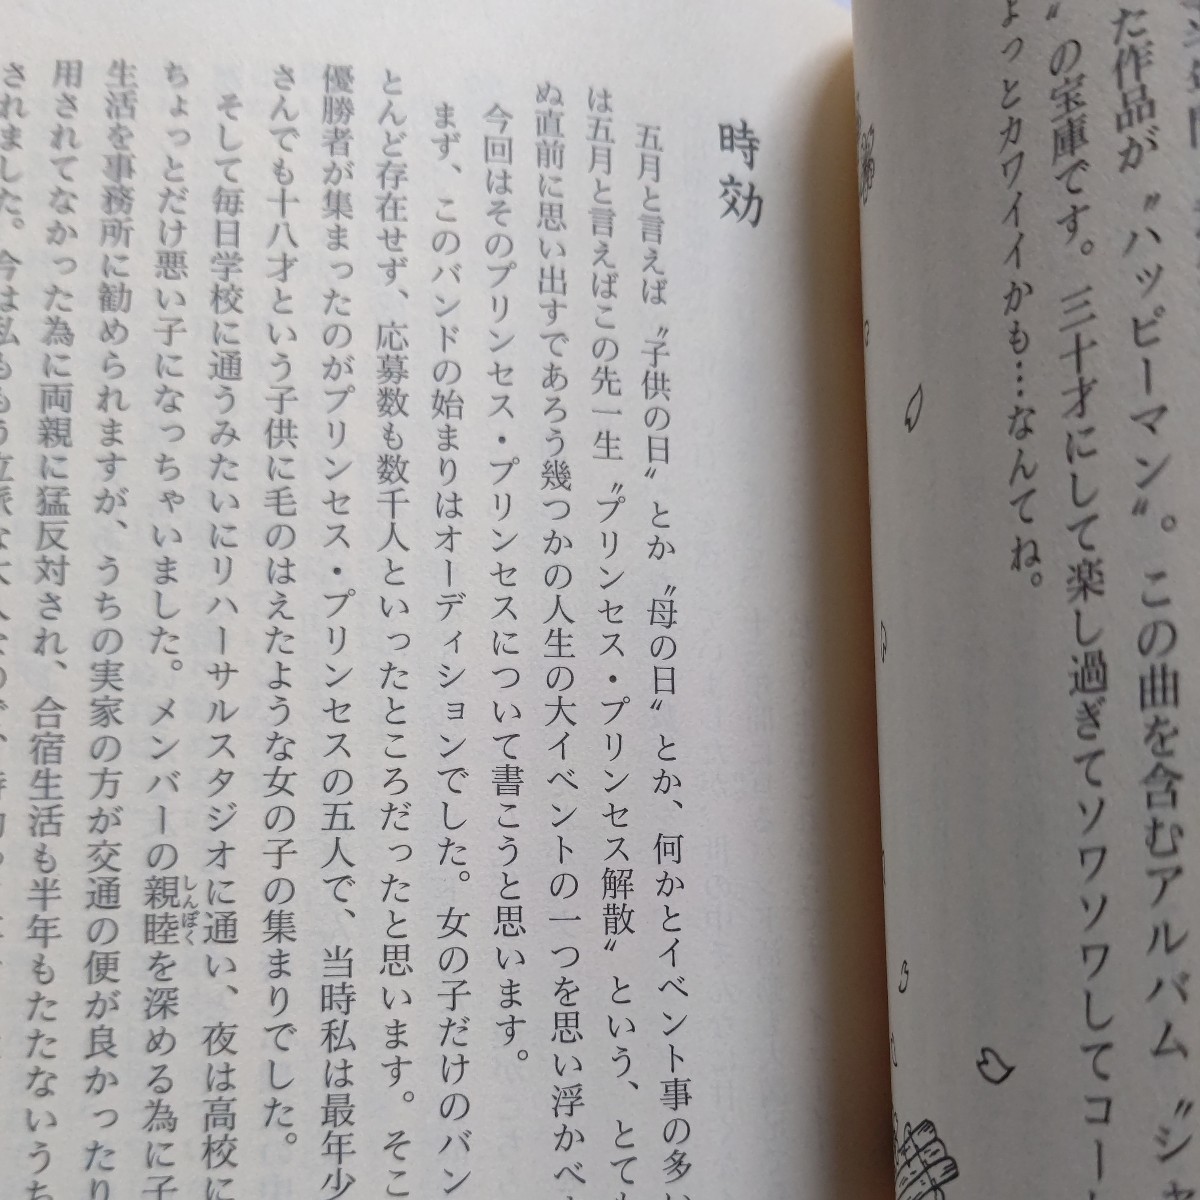 た作品が〝ハッピーマン〟。この曲を含むアルバム〝シ
〟の宝庫です。三十才にして楽し過ぎてソワソワしてコー
ょっとカワイイかも…なんてね。
時効
五月と言えば〝子供の日〟とか〝母の日〟とか、何かとイベント事の多い
は五月と言えばこの先一生〝プリンセス・プリンセス解散〟という、とても
ぬ直前に思い出すであろう幾つかの人生の大イベントの一つを思い浮かべ
今回はそのプリンセス・プリンセスについて書こうと思います。
まず、このバンドの始まりはオーディションでした。女の子だけのバン
とんど存在せず、応募数も数千人といったところだったと思います。そこ
優勝者が集まったのがプリンセス・プリンセスの五人で、当時私は最年少
さんでも十八才という子供に毛のはえたような女の子の集まりでした。
そして毎日学校に通うみたいにリハーサルスタジオに通い、夜は高校に
ちょっとだけ悪い子になっちゃいました。メンバーの親睦しんぼくを深める為に子
生活を事務所に勧められますが、うちの実家の方が交通の便が良かったり
用されてなかった為に両親に猛反対され、合宿生活も半年もたたないうち
されました。今は私ももう立派な大人なので、時効